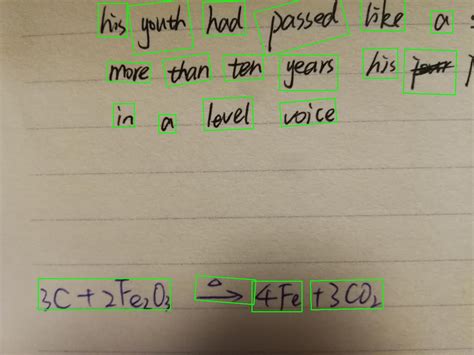 his youth had passed like a
more than ten years his
in a level voice
3C + 2Fe₂O₃ →^△ 4Fe + 3CO₂